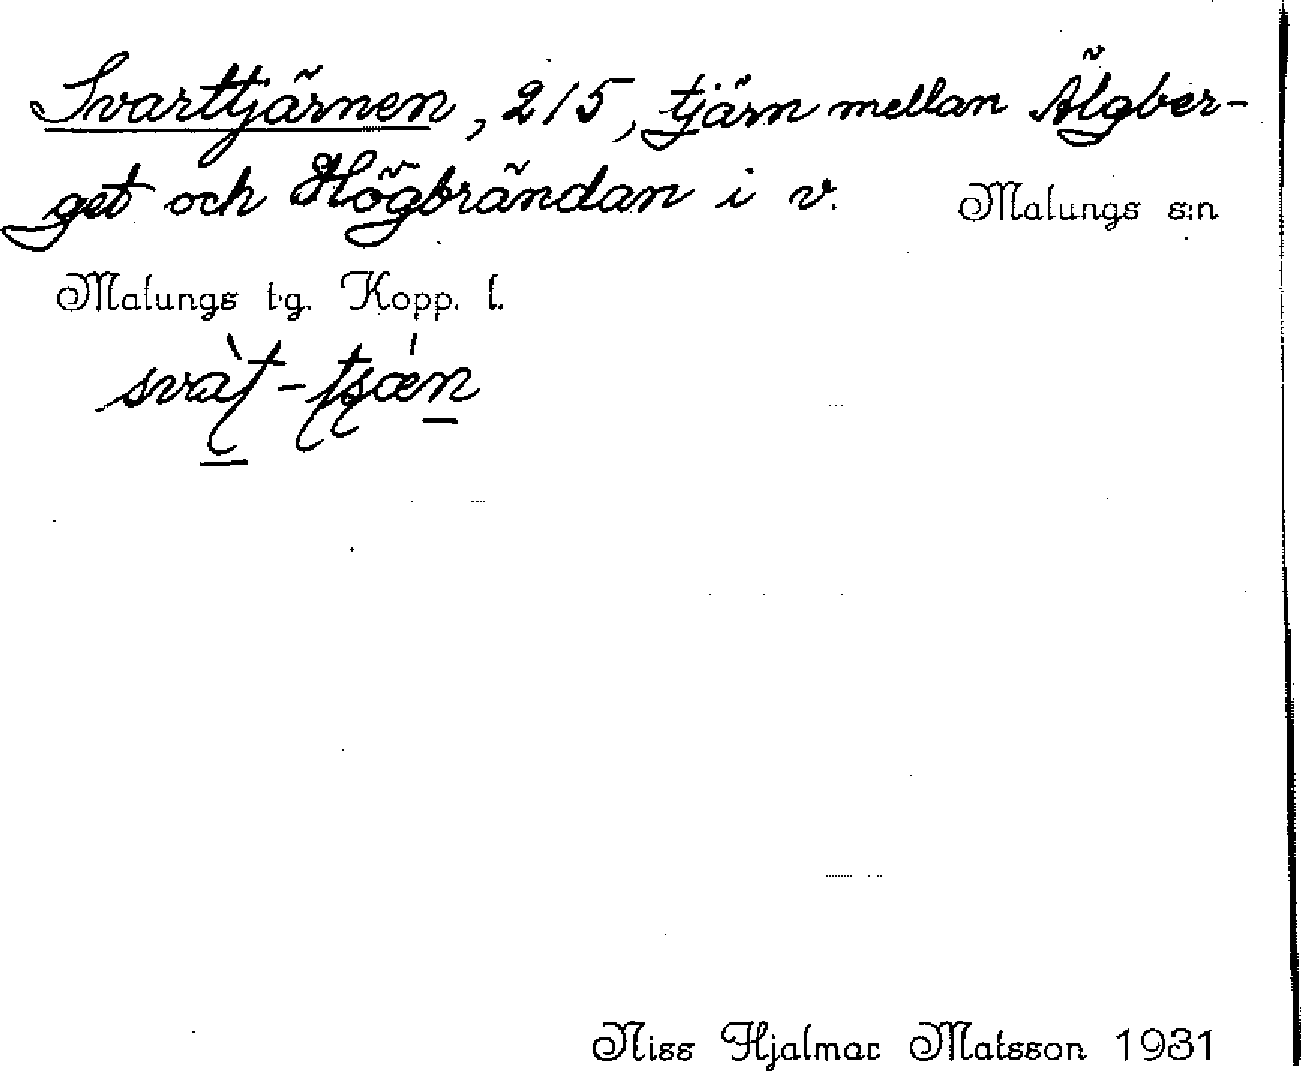 Svarttjärnen, 215, tjärn mellan Älgber-
get och Högbrändan i v. Malungs s:n
Malungs tg. Kopp. l.
svàt-tsǽn
Niss Hjalmar Matsson 1931